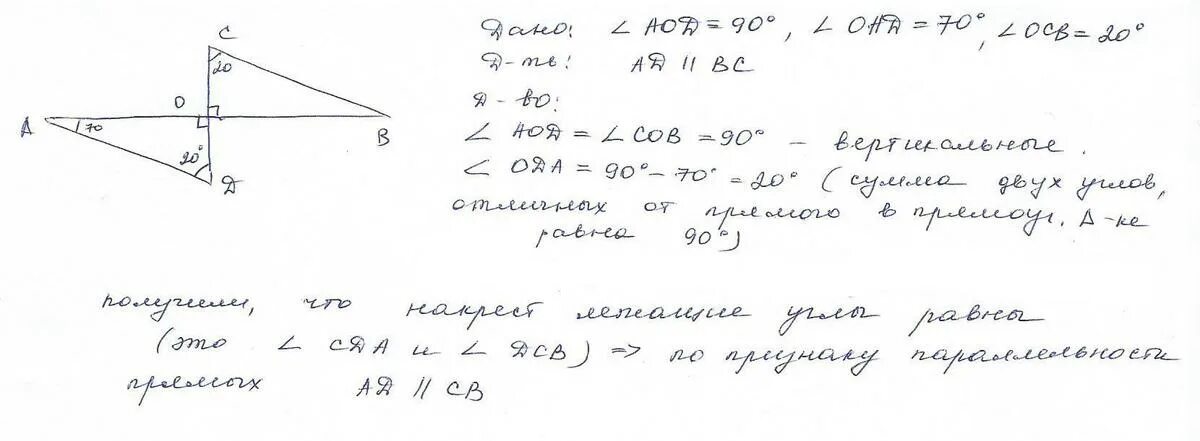 C
20
O
A
70
B
20°
D
Дано: ∠AOD = 90°, ∠OAD = 70°, ∠OCB = 20°
Д-ть: AD || BC
Д-во:
∠AOD = ∠COB = 90° – вертикальные.
∠ODA = 90° – 70° = 20° (сумма двух углов,
отличных от прямого в прямоуг. Δ-ке
равна 90°)
получили, что накрест лежащие углы равны
(это ∠CDA и ∠DCB) => по признаку параллельности
прямых AD || CB